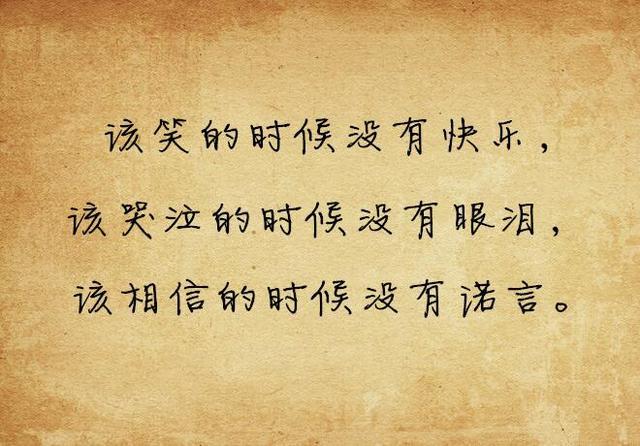 该笑的时候没有快乐，
该哭泣的时候没有眼泪，
该相信的时候没有诺言。